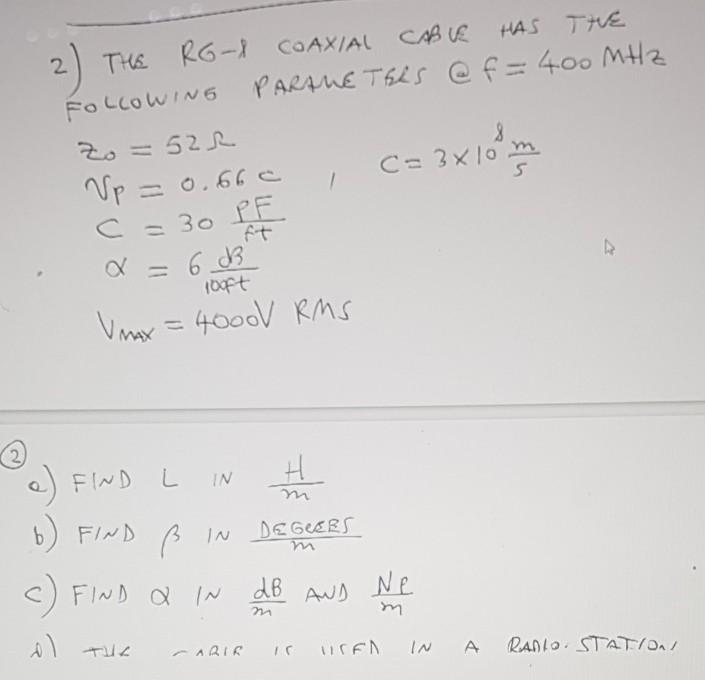 2) THE RG-8 COAXIAL CABLE HAS THE
FOLLOWING PARAMETERS @ f = 400 MHz
Zo = 52 Ω
Vp = 0.66 c , C = 3×10⁸ m/s
C = 30 PF/ft
α = 6 dB/100ft
VMAX = 4000V RMS
②
a) FIND L IN H/m
b) FIND β IN DEGREES/m
c) FIND α IN dB/m AND Np/m
d) THE CABLE IS USED IN A RADIO. STATION